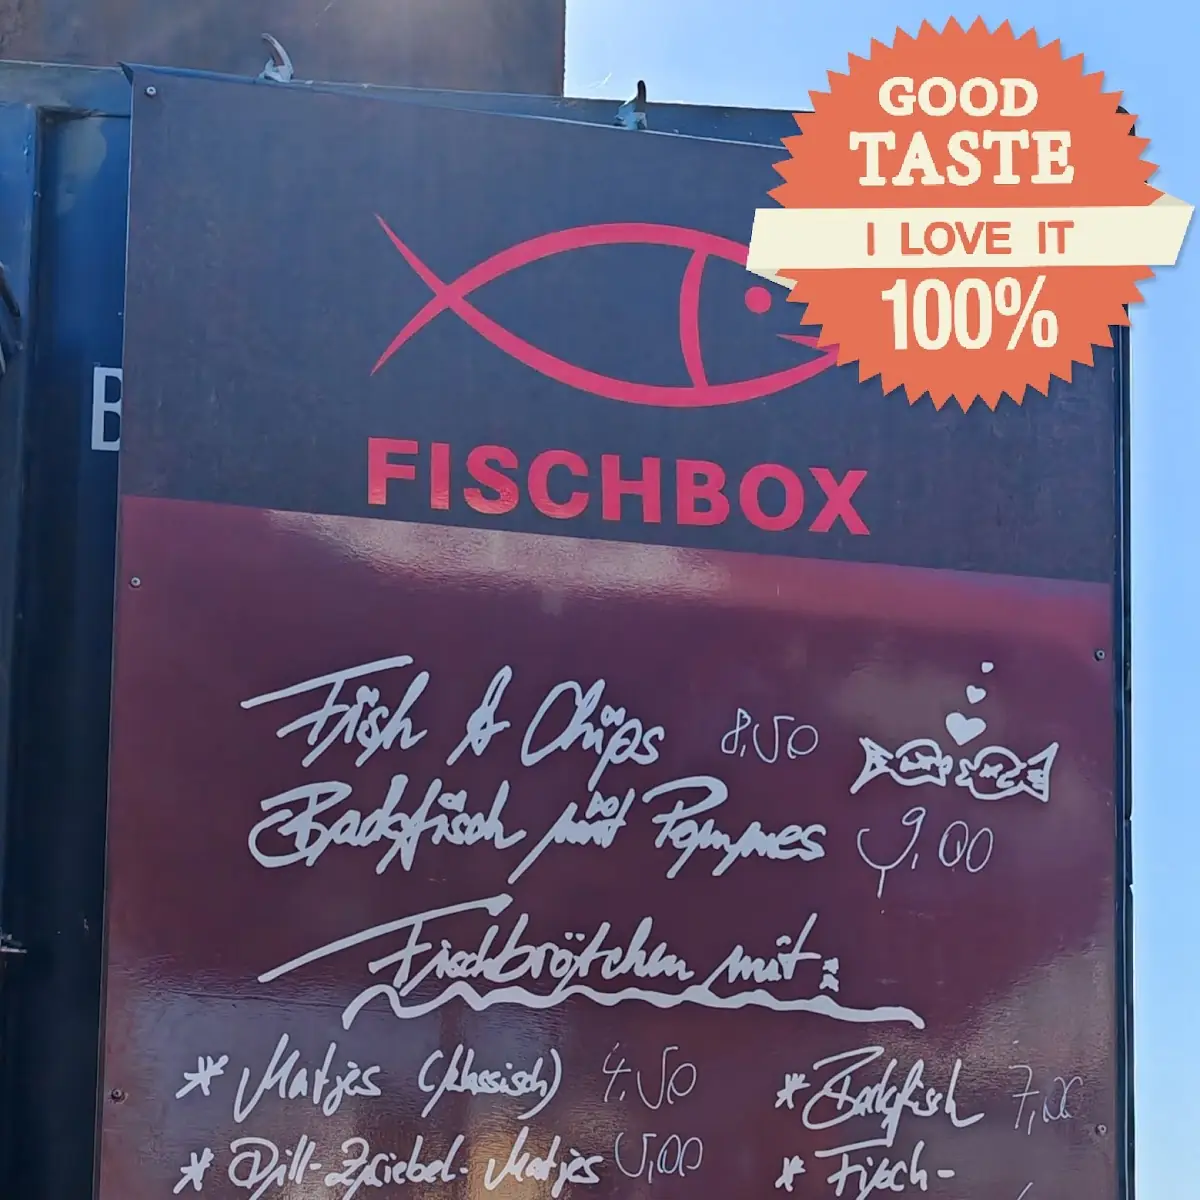 GOOD
TASTE
I LOVE IT
100%
B
FISCHBOX
Fish & Chips 8,50
Backfisch mit Pommes 9,00
Fischbrötchen mit:
* Matjes (klassisch) 4,50
* Backfisch 7,00
* Dill-Zwiebel-Matjes 5,00
* Fisch-